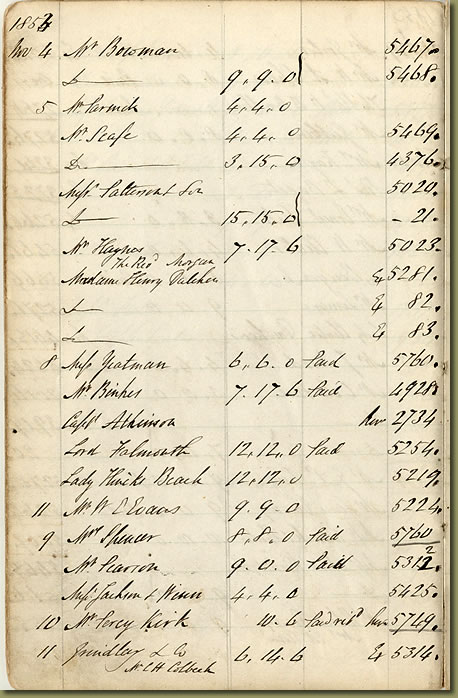 1852
Nov 4 Mr Bowman 5467.
D 9.9.0 5468.
5 Mr 4.4.0
Mr Scafe 4.4.0 5469.
D 3.15.0 4376.
Messrs Patterson & Son 5020.
D 15.15.0 - 21.
Mr Haynes 7.17.6 5023.
The Revd Morgan
Madame Henry & 5281.
D & 82.
D & 83.
8 Miss Yeatman 6.6.0 Paid 5760.
Mr Binkes 7.17.6 Paid 4928.
Capt Atkinson 2734
Lord Falmouth 12.12.0 Paid 5254.
Lady Hicks Beach 12.12.0 5219.
11 Mr W Evans 9.9.0 5224.
9 Mrs Spencer 8.8.0 Paid 5760
Mr Pearson 9.0.0 Paid 5312
Messrs Jackson & Wenn 4.4.0 5425.
10 Mr Percy Kirk 10.6 Paid 5749.
11 Grindlay & Co 6.14.6 & 5314.
Mr C H Colbeck